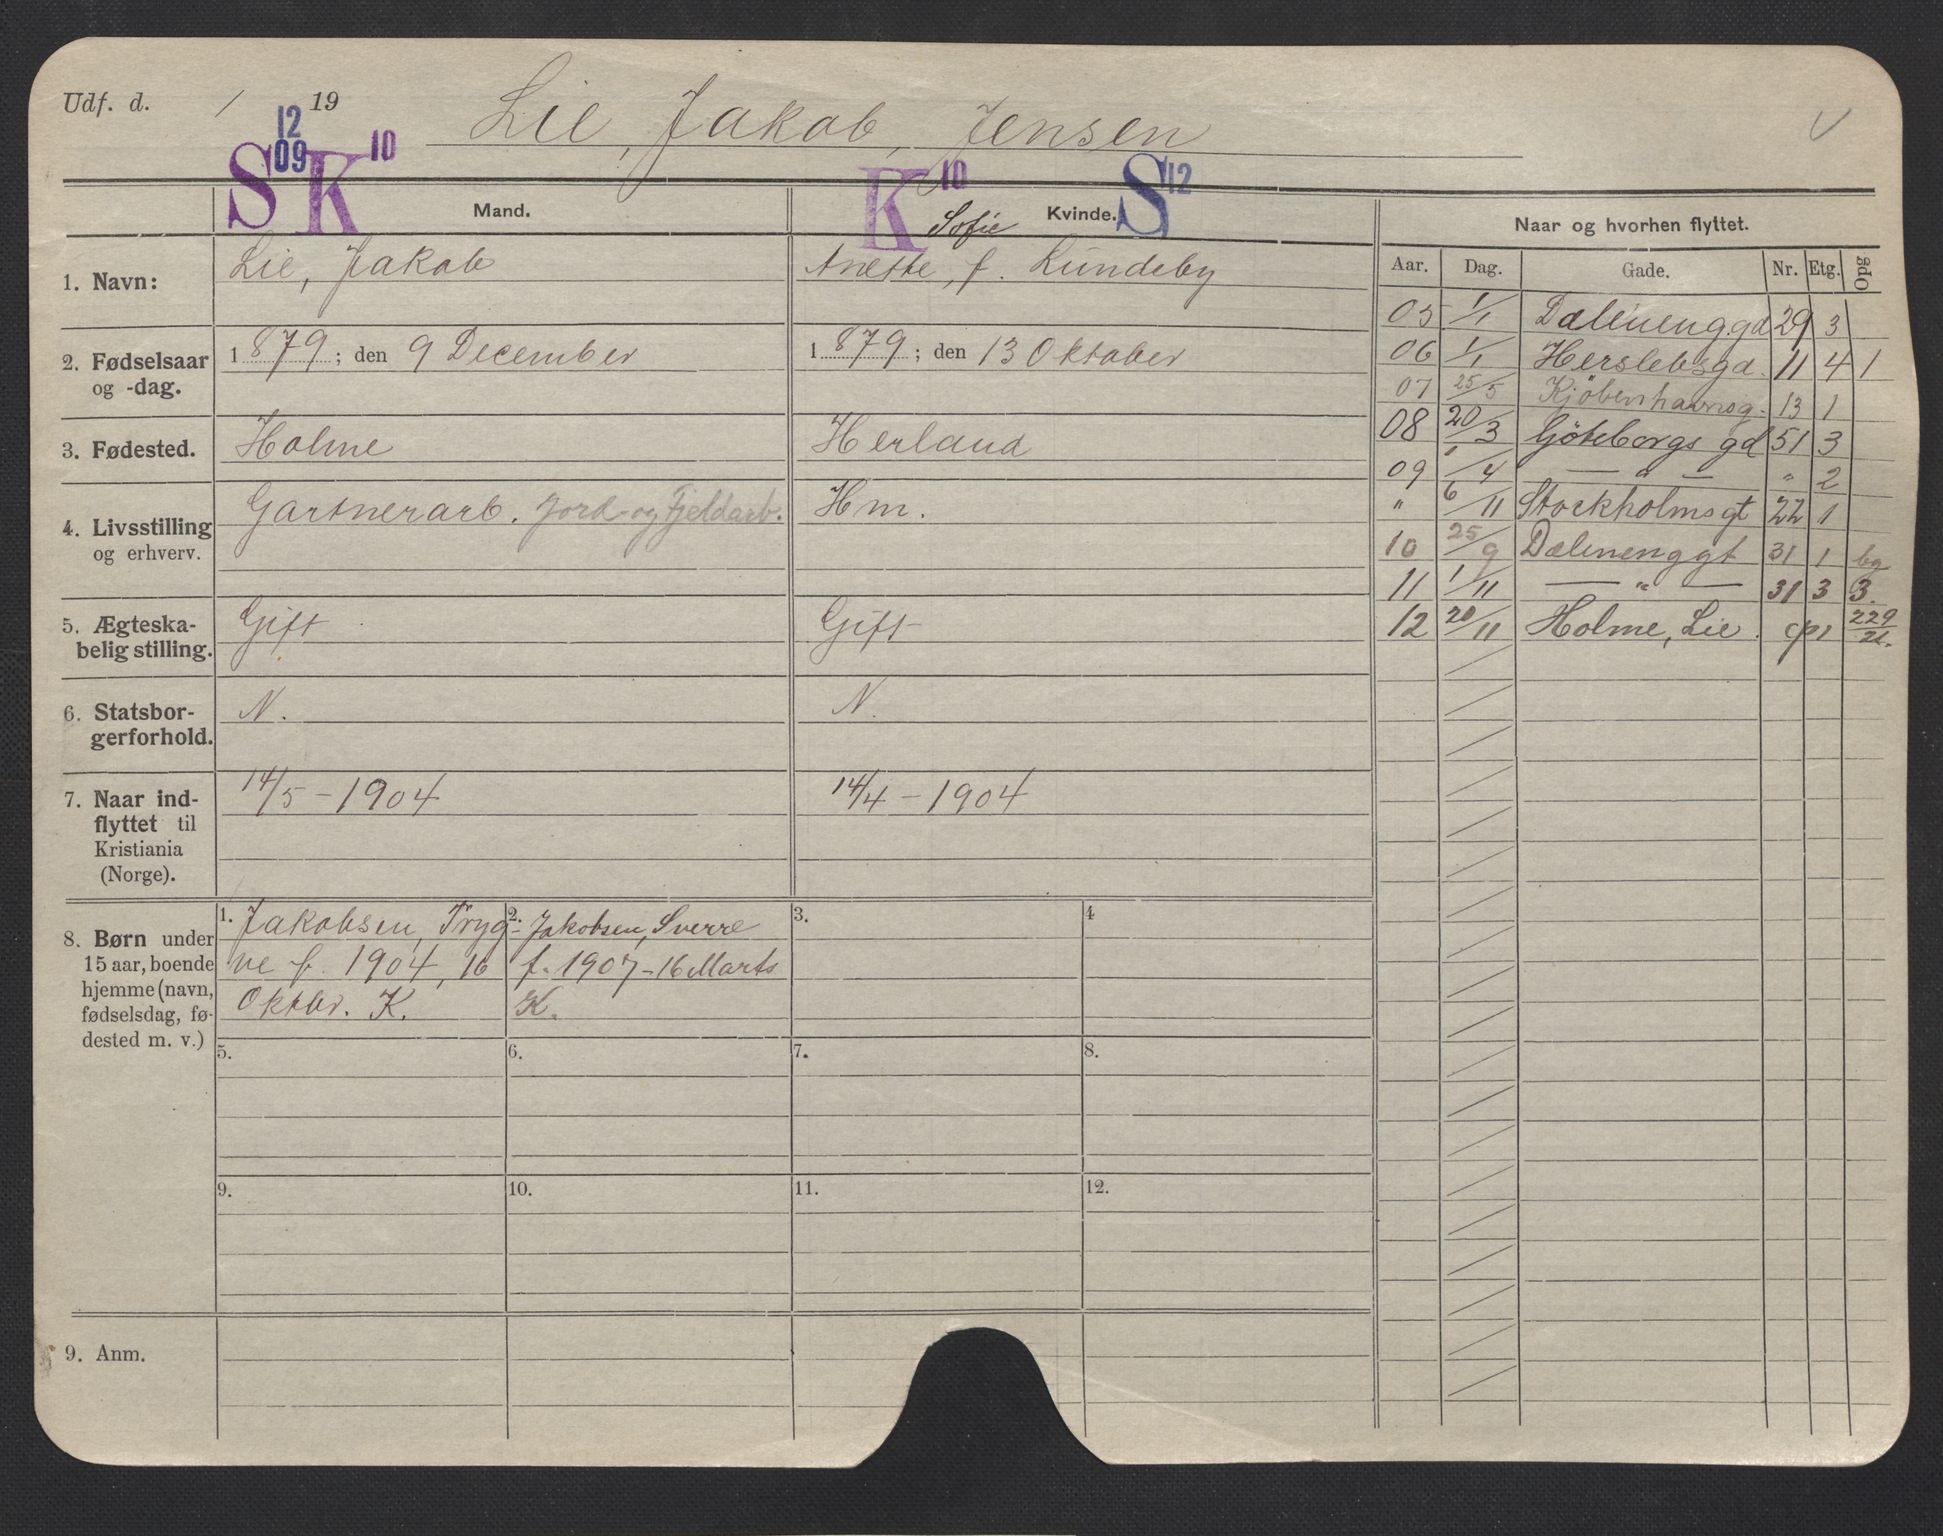 Udf. d. / 19
Lie, Jakob, Jensen
12
09
S K 10
K 10
S 12
Mand.
Kvinde.
Naar og hvorhen flyttet.
Aar. Dag. Gade. Nr. Etg. Opg
1. Navn:
Lie, Jakob
Sofie
Anette, f. Lundeby
2. Fødselsaar
og -dag.
1879; den 9 December
1879; den 13 Oktober
3. Fødested.
Holme
Herland
4. Livsstilling
og erhverv.
Gartnerarb. Jord- og Fjeldarb.
Hm.
5. Ægteska-
belig stilling.
Gift
Gift
6. Statsbor-
gerforhold.
N.
N.
7. Naar ind-
flyttet til
Kristiania
(Norge).
14/5 - 1904
14/4 - 1904
05 1/1 Dælenenggd 29 3
06 1/1 Herslebsgd. 11 4 1
07 25/5 Kjöbenhavnsg. 13 1
08 20/3 Göteborgs gd 51 3
09 1/4 — " — " 2
" 6/11 Stockholmsgt 22 1
10 25/9 Dælenenggt 31 1 bg
11 1/11 — " — 31 3 3.
12 20/11 Holme, Lie. 229/21.
8. Børn under
15 aar, boende
hjemme (navn,
fødselsdag, fø-
dested m. v.)
1. Jakobsen, Tryg-
ve f. 1904, 16
Oktbr. K.
2. Jakobsen, Sverre
f. 1907 - 16 Marts
K.
3.
4
5.
6.
7.
8.
9.
10.
11.
12.
9. Anm.